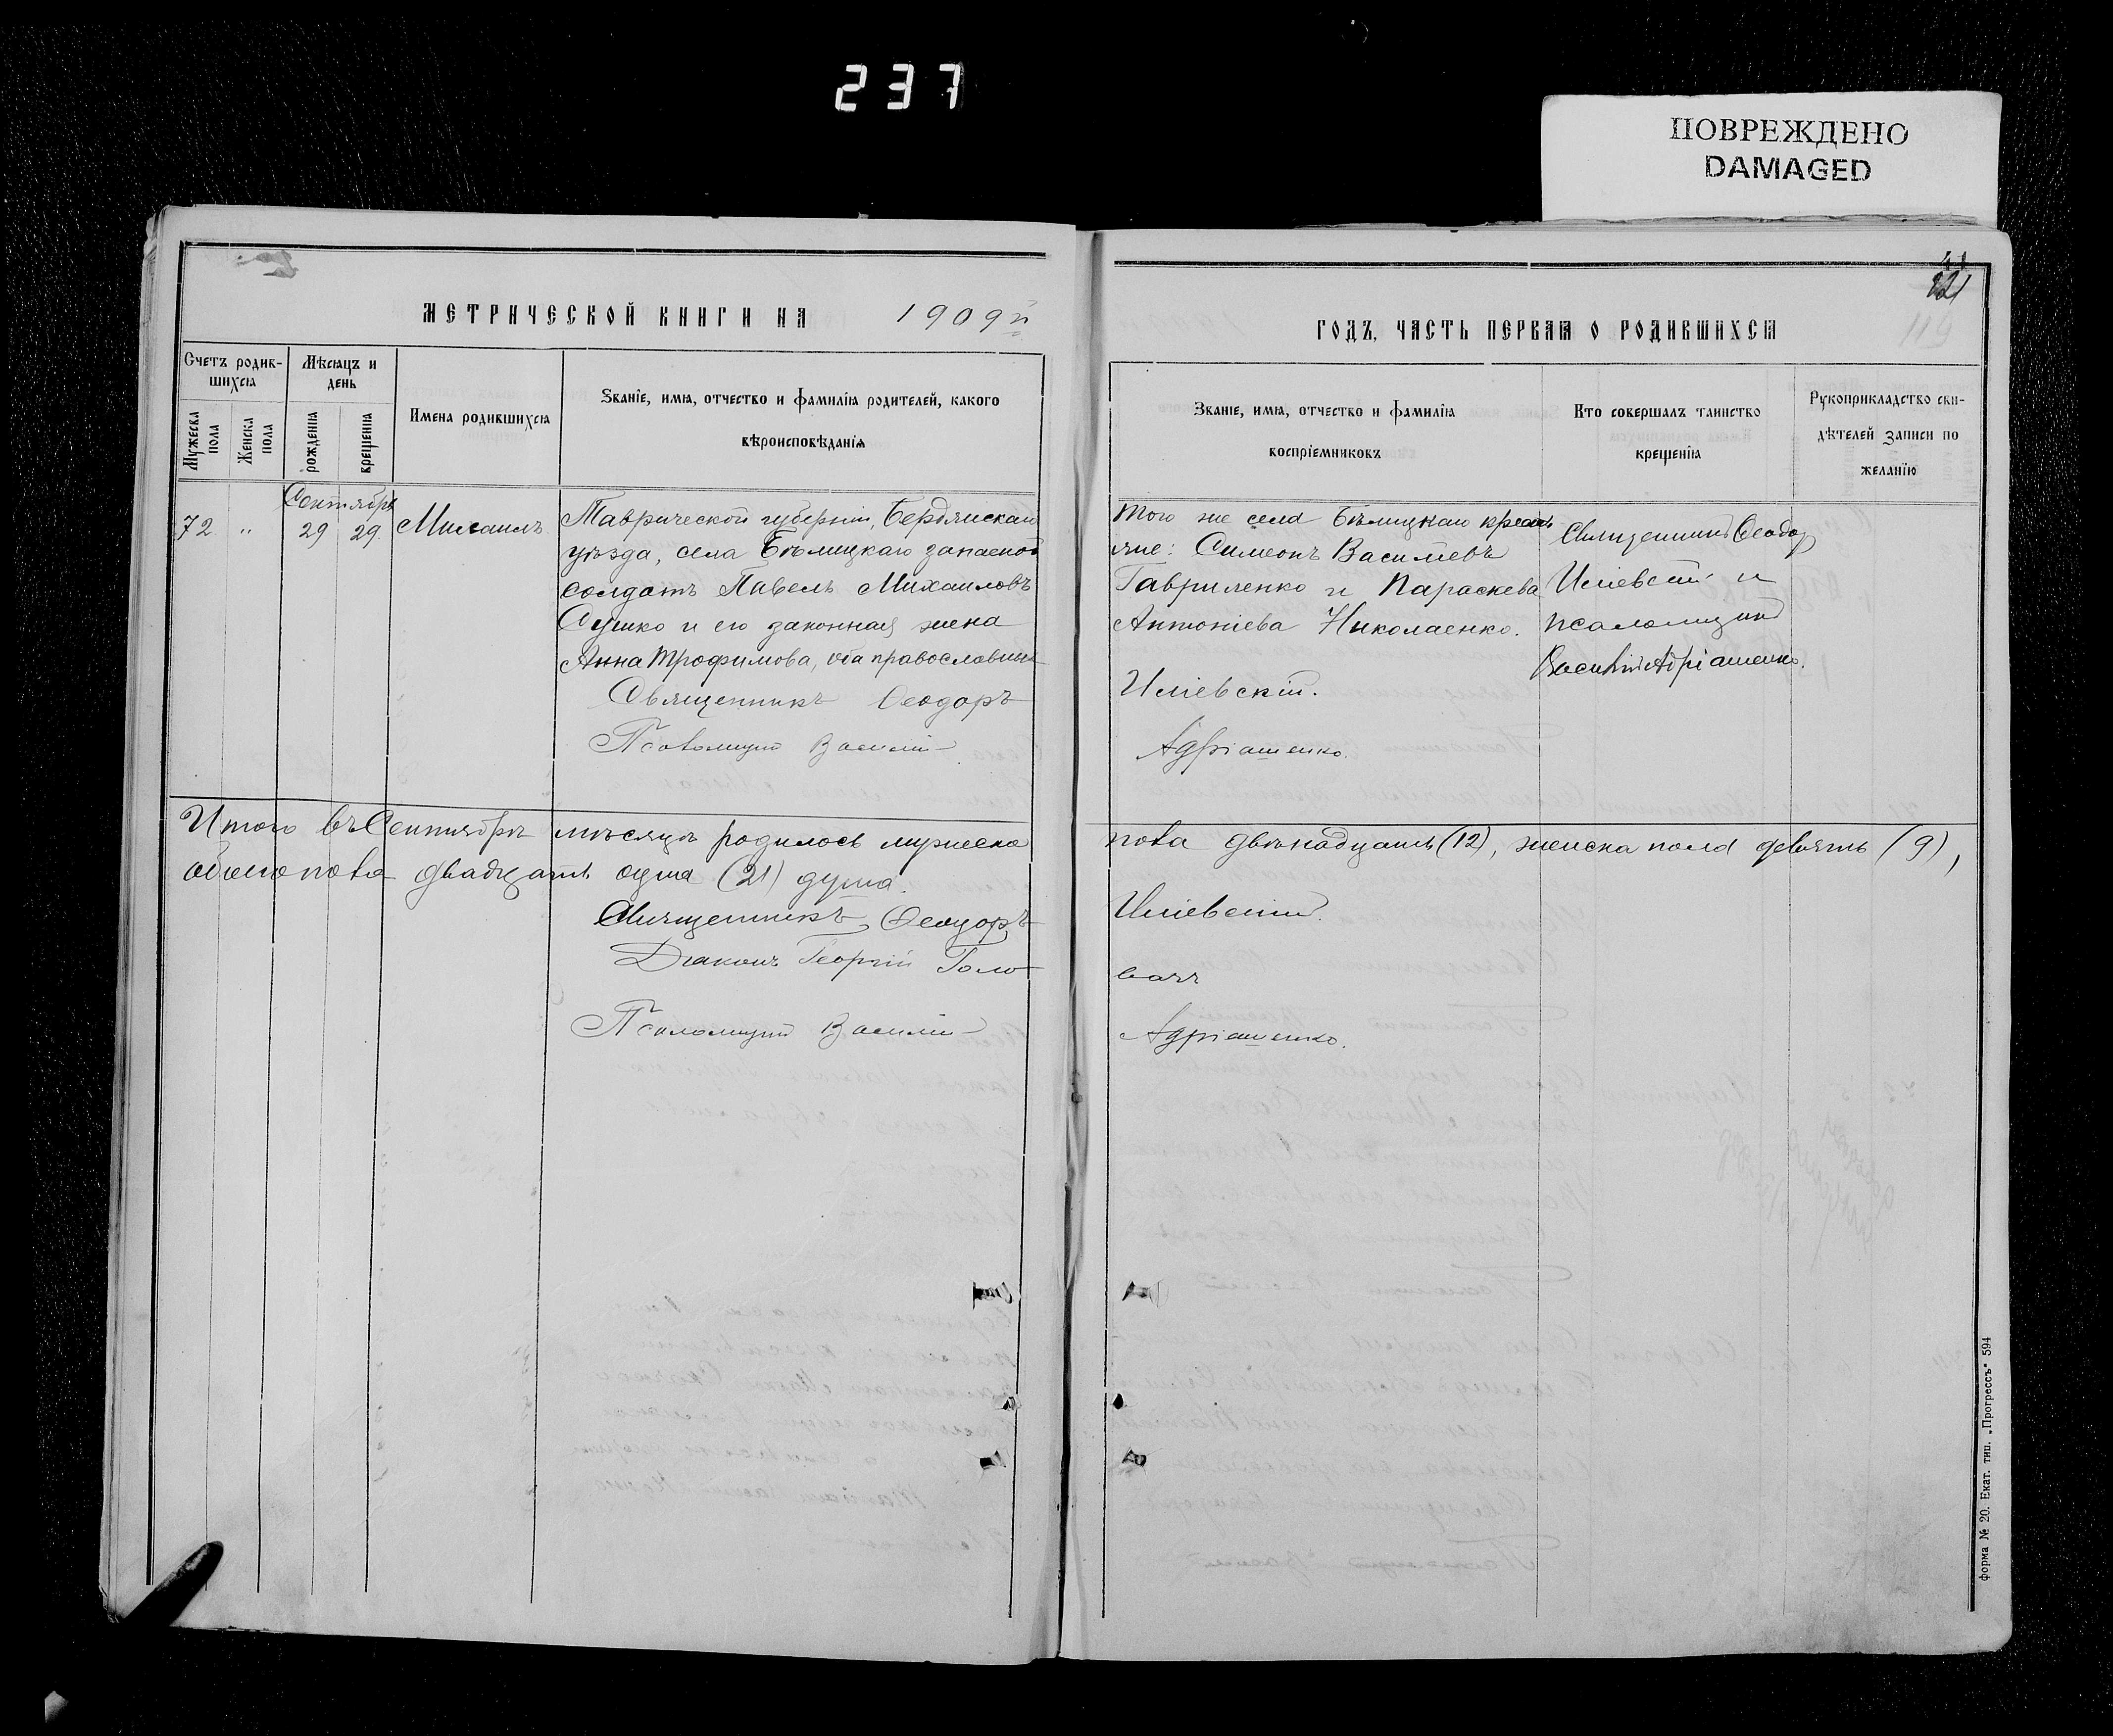 237
ПОВРЕЖДЕНО
DAMAGED
МЕТРИЧЕСКОЙ КНИГИ НА 1909й
Счетъ родив-
шихся
Мѣсяцъ и
день
Мужеска
пола
Женска
пола
рожденія
крещенія
Имена родившихся
Званіе, имя, отчество и фамилія родителей, какого
вѣроисповѣданія
Сентябрь
72 " 29 29. Михаилъ.
Таврической губерніи, Бердянскаго
уѣзда, села Бѣлицкаго запасной
солдатъ Павелъ Михаиловъ
Сушко и его законная жена
Анна Трофимова, оба православные
Священникъ Ѳеодоръ
Псаломщикъ Василій
Итого въ Сентябрѣ мѣсяцѣ родилось мужеска
обоего пола двадцать одна (21) душа.
Священникъ Ѳеодоръ
Діаконъ Георгій Голо-
Псаломщикъ Василій
41
121
119
ГОДЪ, ЧАСТЬ ПЕРВАЯ О РОДИВШИХСЯ
Званіе, имя, отчество и фамилія
воспріемниковъ
Кто совершалъ таинство
крещенія
Рукоприкладство сви-
дѣтелей записи по
желанію
Того же села Бѣлицкаго крестъ
яне: Симеонъ Васильевъ
Гавриленко и Параскева
Антоніева Николаенко.
Иліевскій.
Адріашенко.
Священникъ Ѳеодор
Иліевскій и
псаломщикъ
Василій Адріашенко.
пола двѣнадцать (12), женска пола девять (9),
Иліевскій.
вачъ
Адріашенко.
форма № 20. Екат. тип. „Прогрессъ" 594